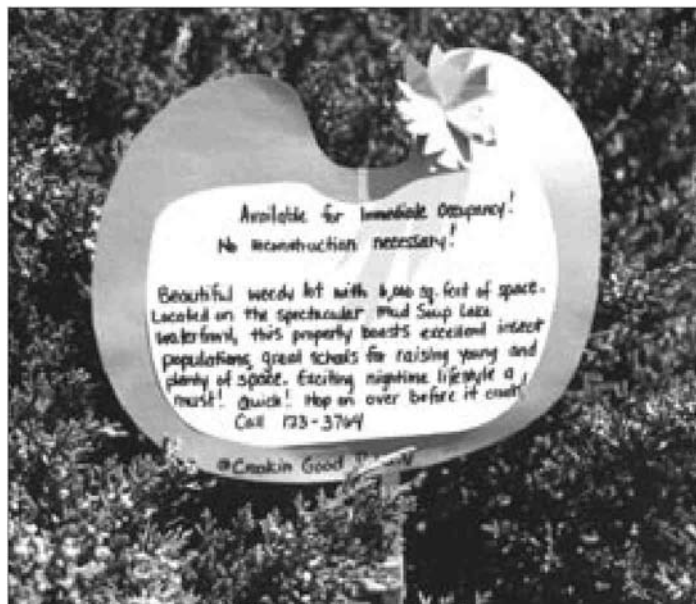 Available for Immediate Occupancy!
No reconstruction necessary!
Beautiful weedy lot with sq. feet of space.
Located on the spectacular Mud Soup Lake
waterfront, this property boasts excellent insect
populations, great schools for raising young and
plenty of space. Exciting nightime lifestyle a
must! Quick! Hop on over before it
Call 123-3764
@Croakin Good